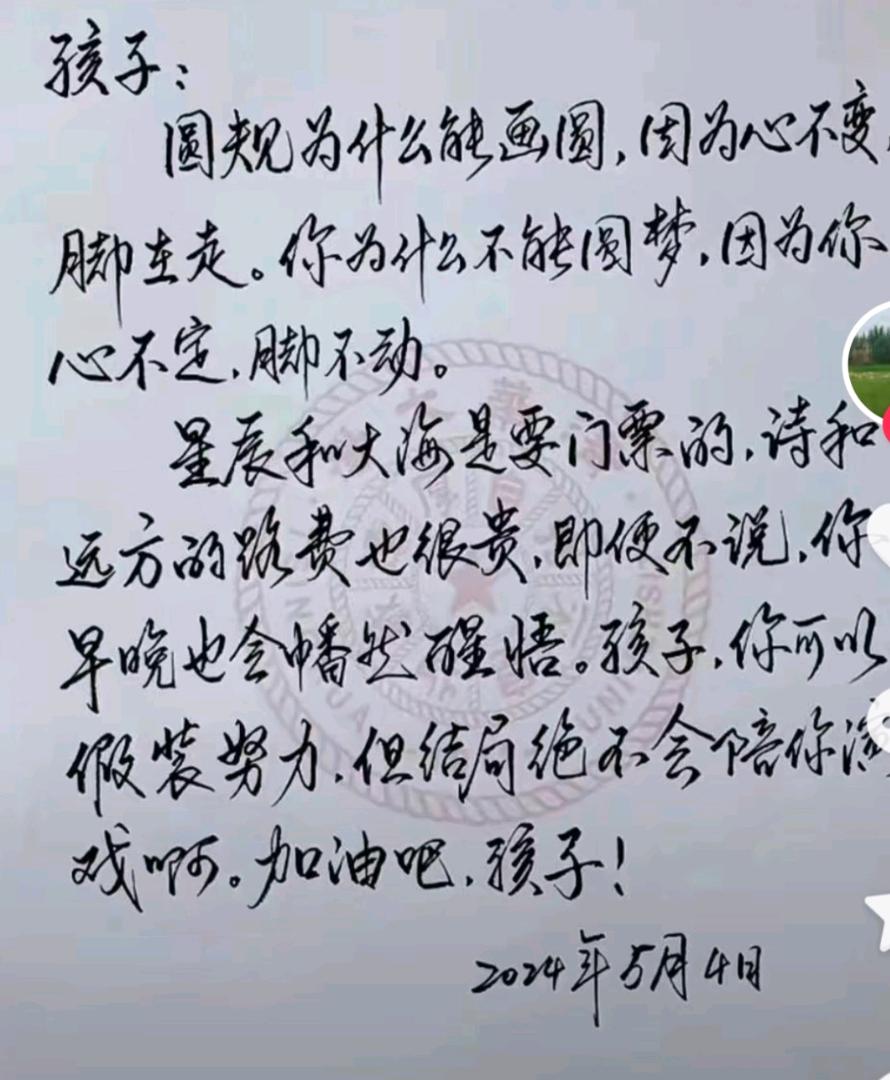 孩子：
圆规为什么能画圆，因为心不变，
脚在走。你为什么不能圆梦，因为你
心不定，脚不动。
星辰和大海是要门票的，诗和
远方的路费也很贵，即便不说，你
早晚也会幡然醒悟。孩子，你可以
假装努力，但结局绝不会陪你演
戏啊。加油吧，孩子！
2024年5月4日